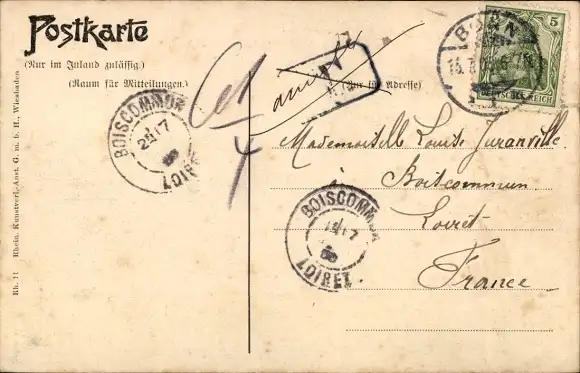 Postkarte
(Nur im Inland zulässig.)
(Raum für Mitteilungen.)
(Nur für Adresse)
BONN
5
DEUTSCHES REICH
BOISCOMMUN
LOIRET
Mademoiselle Louise Juranville
à Boiscommun
Loiret
France
BOISCOMMUN
LOIRET
Rh. 11 Rhein. Kunstverl.-Anst. G. m. b. H., Wiesbaden